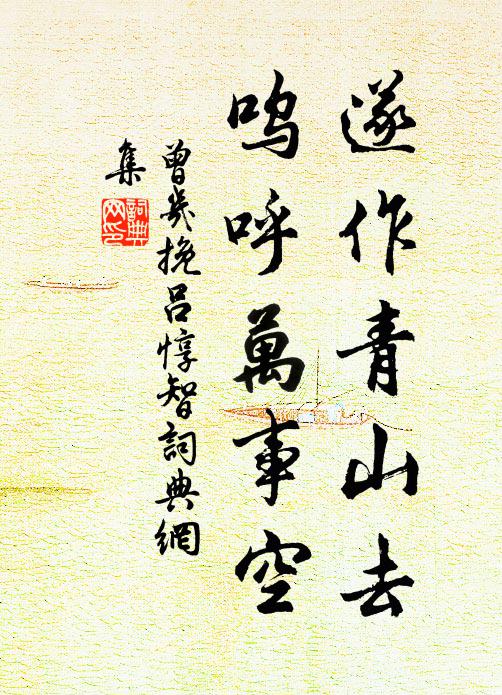 遂作青山去
嗚呼萬事空
曾幾挽呂惇智詞典網
集
詞典
网印